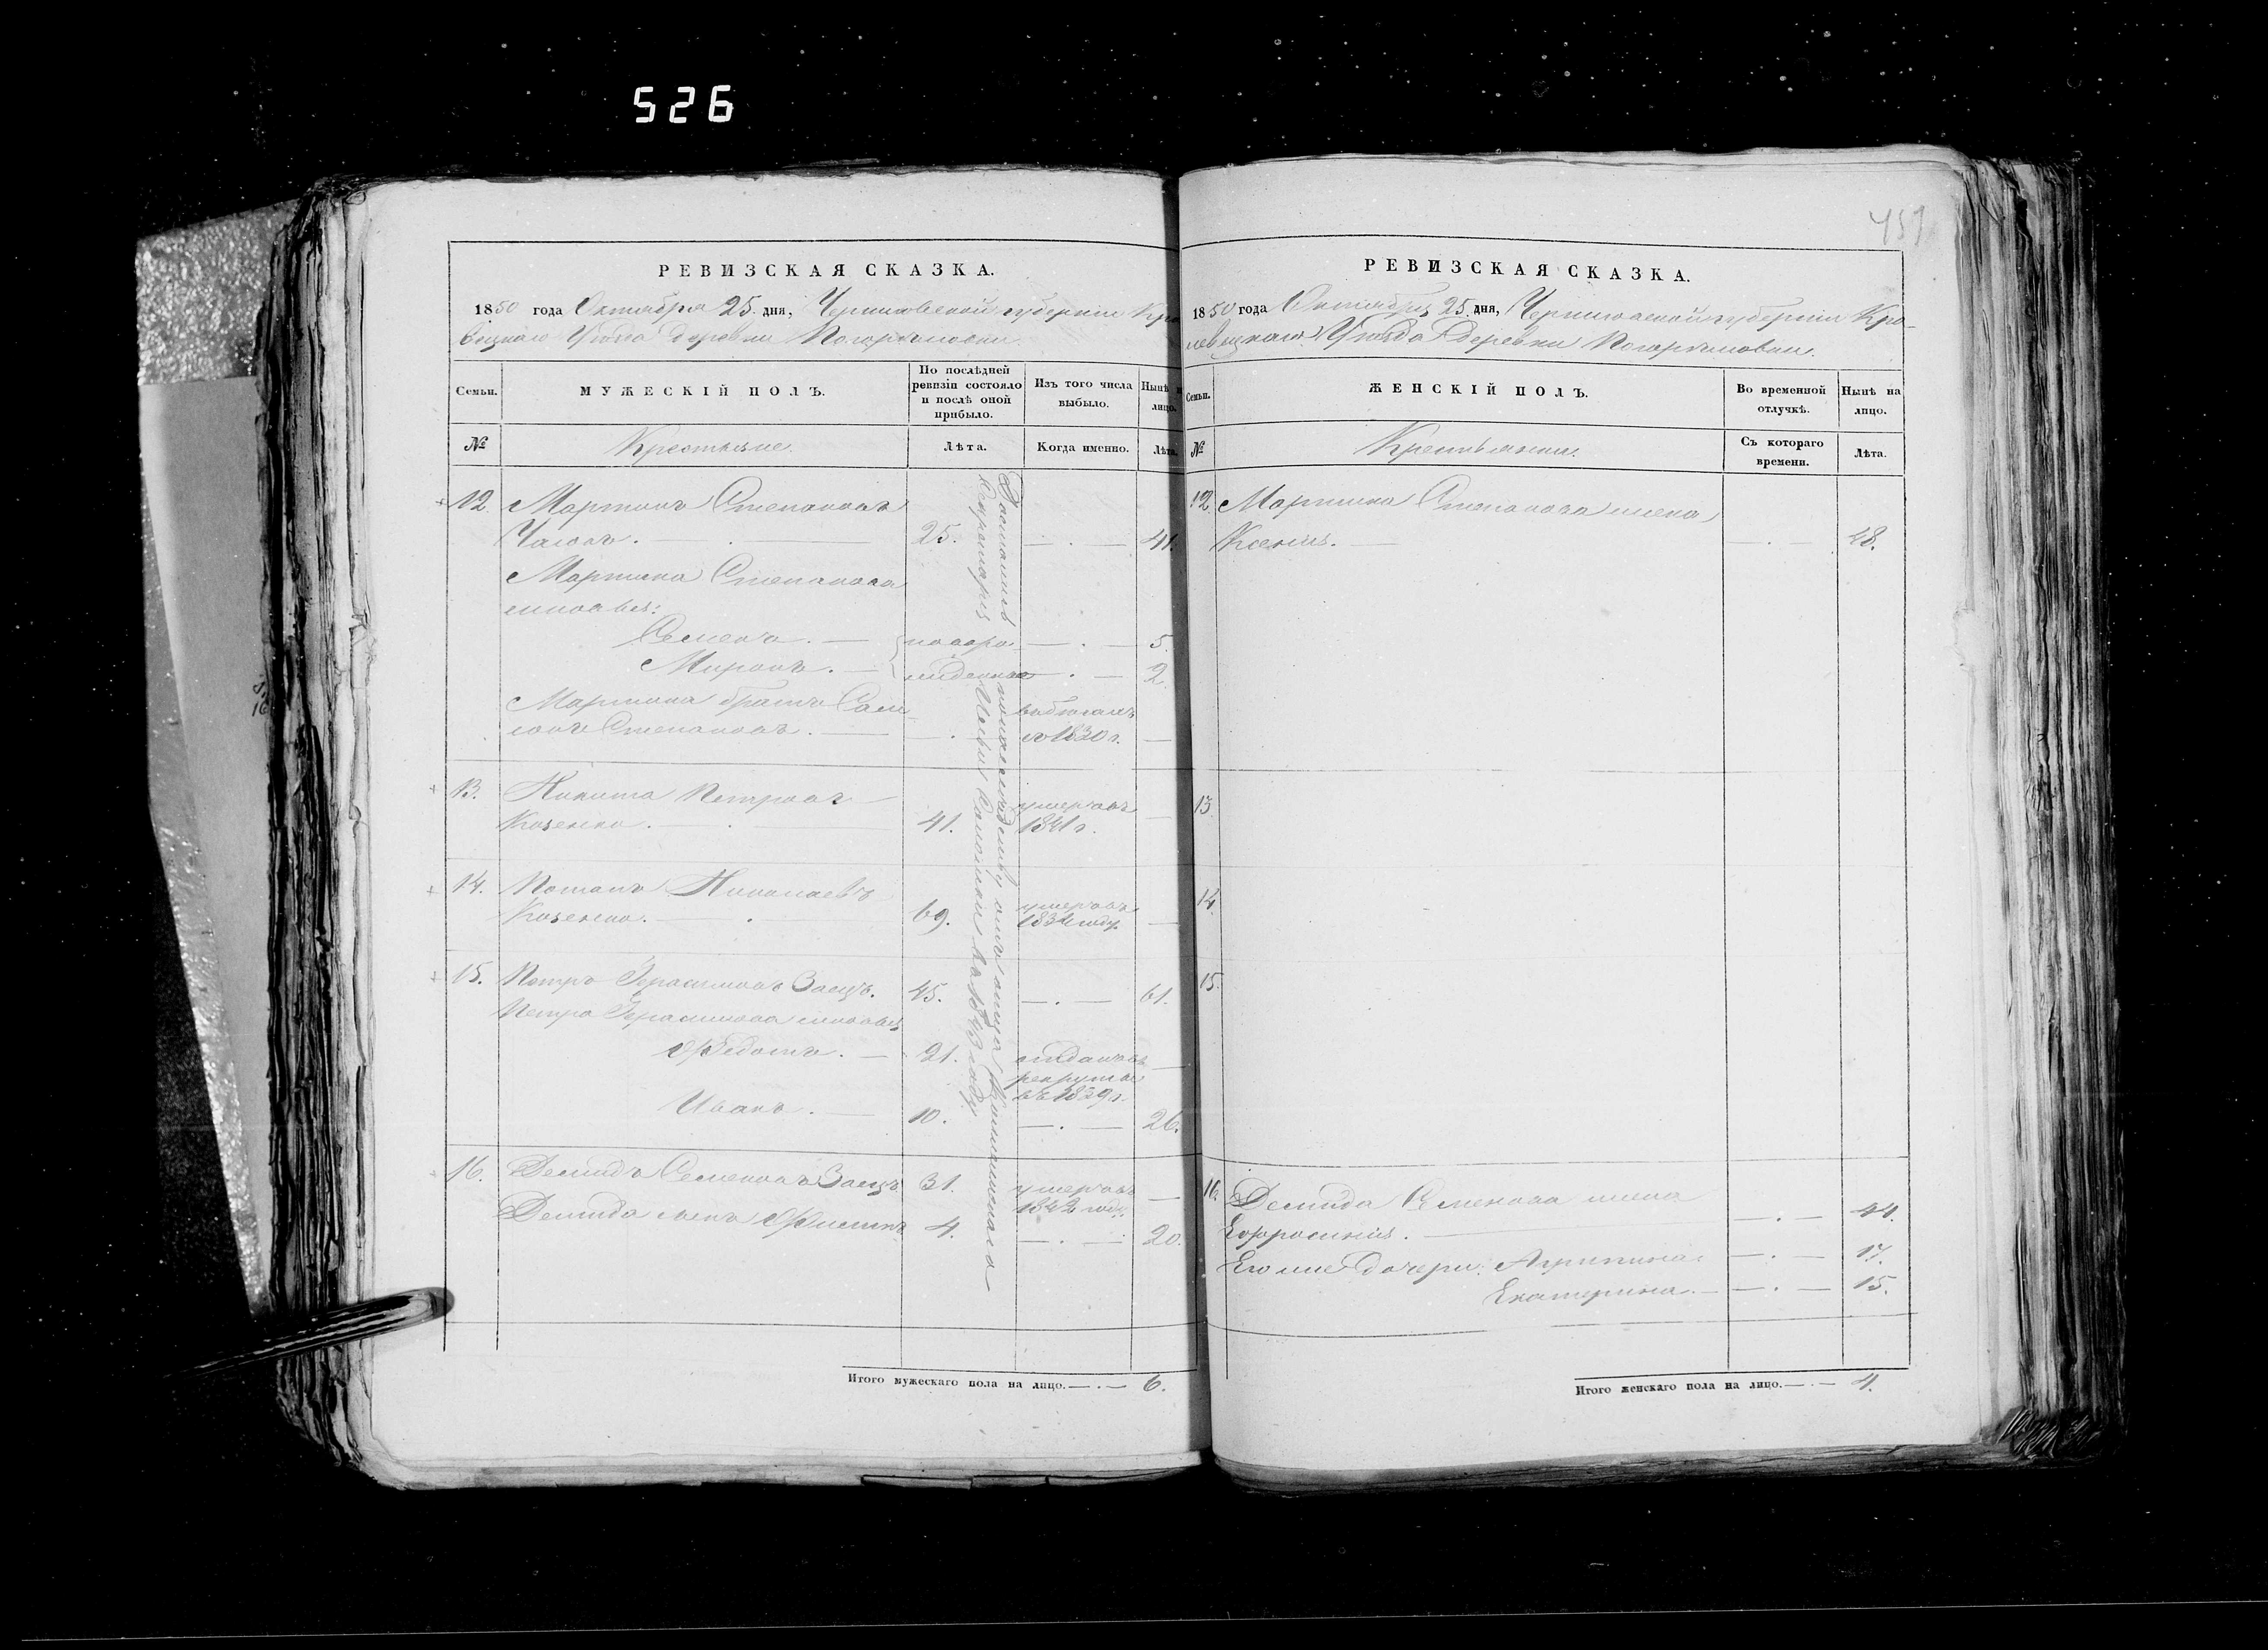 526
457
РЕВИЗСКАЯ СКАЗКА.
1850 года Октября 25. дня, Черниговской губерніи Кро
вецкаго Уѣзда деревни
Семьи.
МУЖЕСКІЙ ПОЛЪ.
По послѣдней
ревизіи состояло
и послѣ оной
прибыло.
Изъ того числа
выбыло.
Нынѣ
лицо.
№
Крестьяне.
Лѣта.
Когда именно.
Лѣта.
12. Мартинъ Степановъ
25. — . — 41.
Мартина Степанова
сыновья:
Семенъ. — новоро — . — 5.
Миронъ. — жденные — . — 2.
Мартина братъ
Степановъ. — . — въ 1830 г. —
13. Никита Петровъ
Козенко. 41. умеръ въ 1841 г. —
14. Потапъ Николаевъ
Козенко. 69. умеръ въ —
15. Петръ Герасимовъ Заецъ. 45. — . — 61.
Петра Герасимова сыновья
Федотъ. — 21. отданъ въ —
рекруты
въ 1839 г.
Иванъ. — 10. — . — 26.
16. Демидъ Семеновъ Заецъ 31. умеръ въ —
1842 году.
Демида сынъ 4. — . — 20.
Достались помѣщику отъ отца
въ 1843 году
Итого мужескаго пола на лицо. — . — 6.
РЕВИЗСКАЯ СКАЗКА.
1850 года Октября 25. дня, Черниговской губерніи Кро-
левецкаго Уѣзда деревни
Семьи.
ЖЕНСКІЙ ПОЛЪ.
Во временной
отлучкѣ.
Нынѣ на
лицо.
№
Крестьянки.
Съ котораго
времени.
Лѣта.
12. Мартина Степанова жена
Ксенія. — — . — 48.
13.
14.
15.
16. Демида Семенова жена
Ефросинія. — — . — 44.
Его же дочери: Агрипина. — . — 17.
Екатерина. — — . — 15.
Итого женскаго пола на лицо. — . — 4.